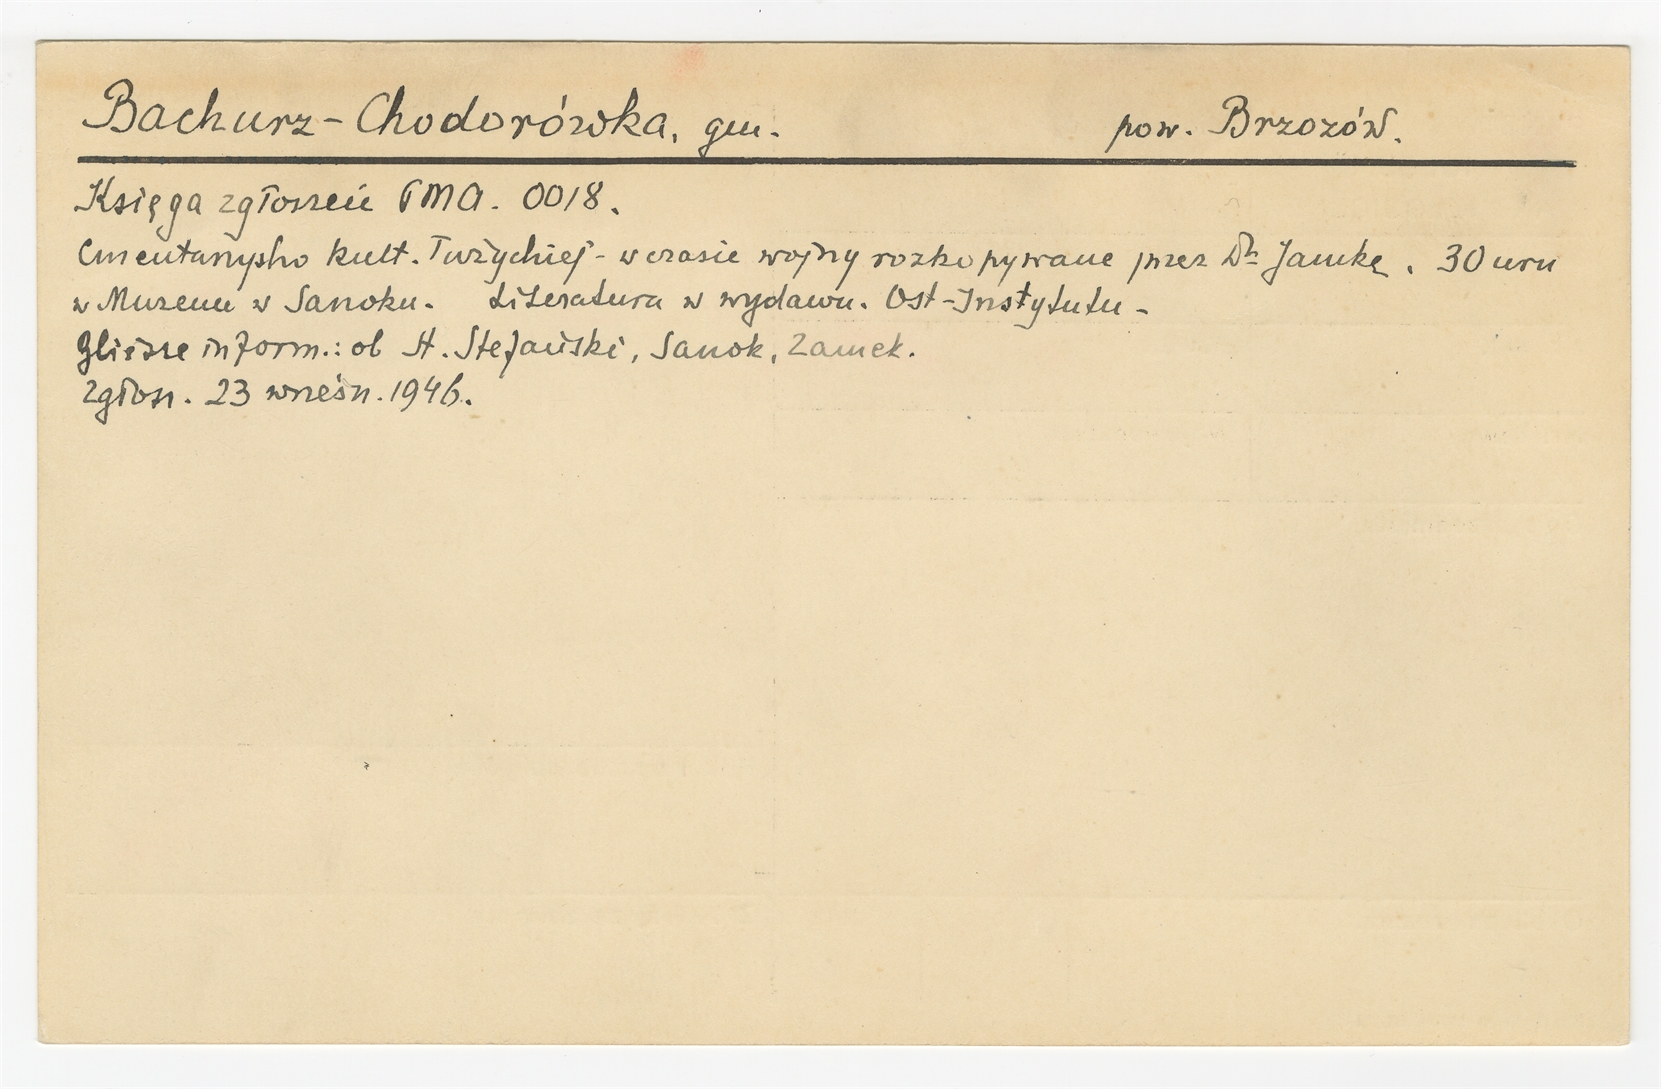 Bachurz-Chodorówka, gm. pow. Brzozów.
Księga zgłoszeń PMA. 0018.
Cmentarzysko kult. Łużyckiej - w czasie wojny rozkopywane przez Dr Jamkę. 30 urn
w Muzeum w Sanoku. Literatura w wydawn. Ost-Instytutu -
Bliższe inform.: ob St. Stefański, Sanok, Zamek.
Zgłosz. 23 wrześn. 1946.